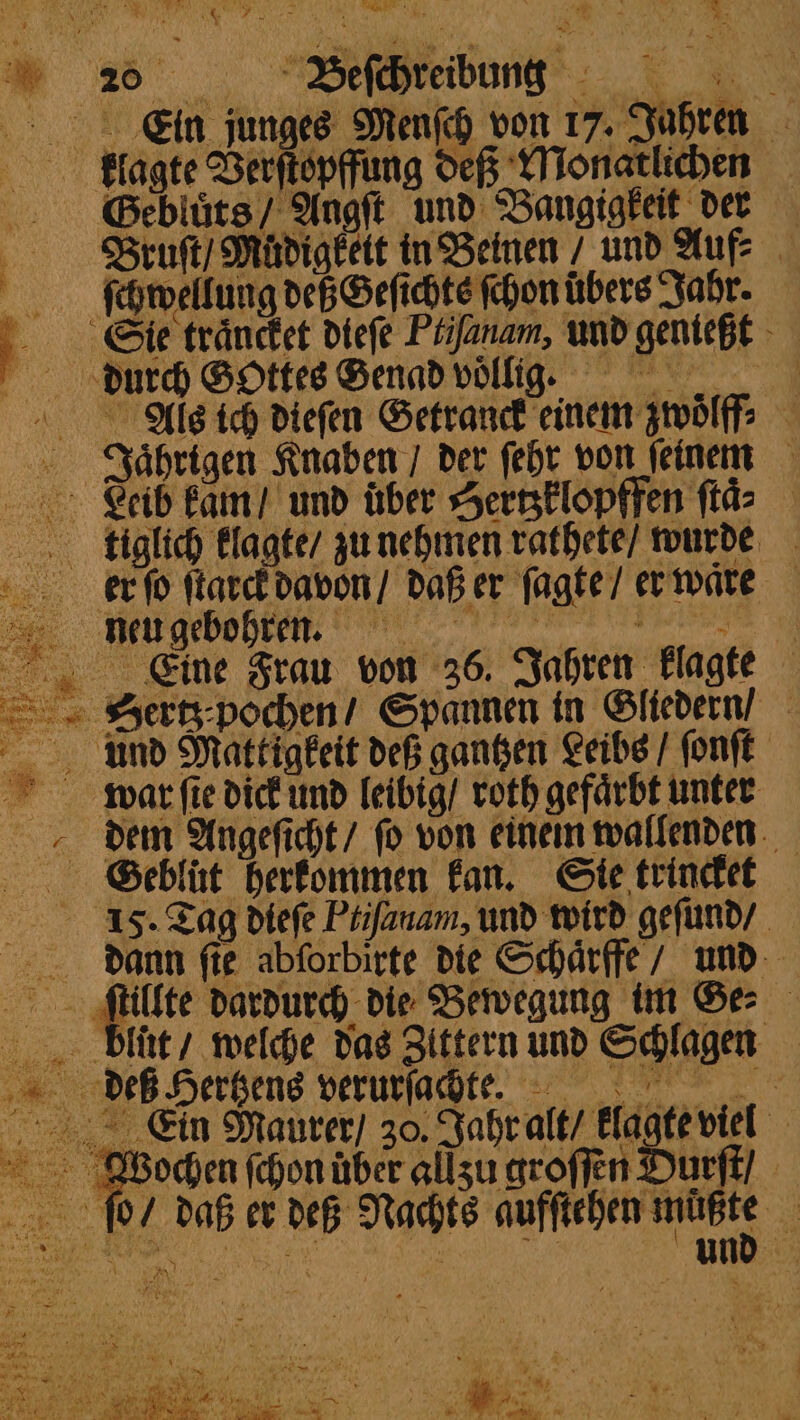 20 Beſchreibung
Ein junges Menſch von 17. Jahren
klagte Verſtopffung deß Monatlichen
Gebluͤts / Angſt und Bangigkeit der
Bruſt / Muͤdigkeit in Beinen / und Auf⸗
ſchwellung deß Geſichts ſchon uͤbers Jahr.
Sie traͤncket dieſe Ptiſanam, und genießt
durch GOttes Genad voͤllig.
Als ich dieſen Getranck einem zwoͤlff⸗
Jaͤhrigen Knaben / der ſehr von ſeinem
Leib kam / und uͤber Hertzklopffen ſtaͤ⸗
tiglich klagte / zu nehmen rathete / wurde
er ſo ſtarck davon / daß er ſagte / er waͤre
neu gebohren.
Eine Frau von 36. Jahren klagte
Hertz-pochen / Spannen in Gliedern /
und Mattigkeit deß gantzen Leibs / ſonſt
war ſie dick und leibig / roth gefaͤrbt unter
dem Angeſicht / ſo von einem wallenden
Gebluͤt herkommen kan. Sie trincket
15. Tag dieſe Ptiſanam, und wird geſund /
dann ſie abſorbirte die Schaͤrffe / und
ſtillte dardurch die Bewegung im Ge⸗
bluͤt / welche das Zittern und Schlagen
deß Hertzens verurſachte.
Ein Maurer / 30. Jahr alt / klagte viel
Wochen ſchon uͤber allzu groſſen Durſt /
ſo / daß er deß Nachts aufſtehen muͤßte
und